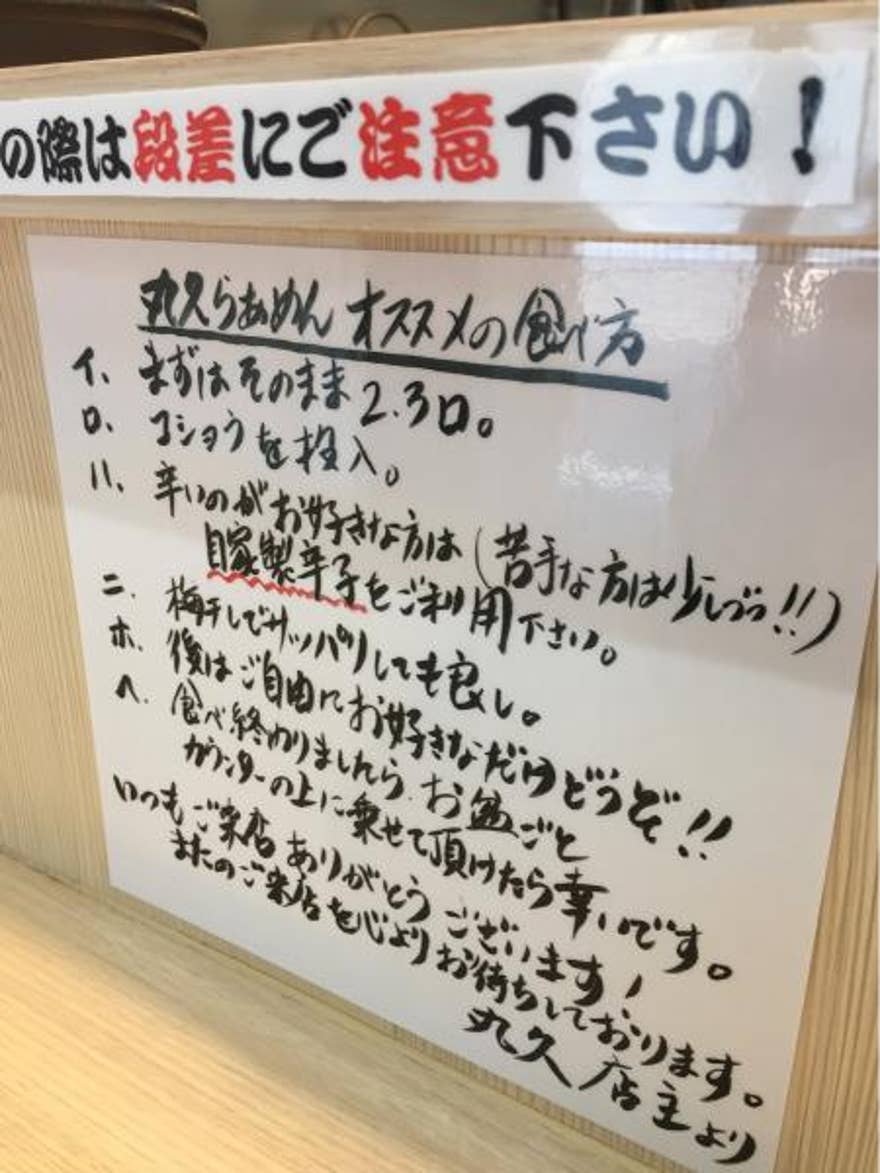 の際は段差にご注意下さい！
丸久らぁめん オススメの食べ方
イ、まずはそのまま2.3口。
ロ、コショウを投入。
ハ、辛いのがお好きな方は(苦手な方は少しづつ!!)
自家製辛子をご利用下さい。
ニ、梅干しでサッパリしても良し。
ホ、後はご自由にお好きなだけどうぞ!!
ヘ、食べ終わりましたら、お盆ごと
カウンターの上に乗せて頂けたら幸いです。
いつもご来店ありがとうございます!
またのご来店を心よりお待ちしております。
丸久 店主より